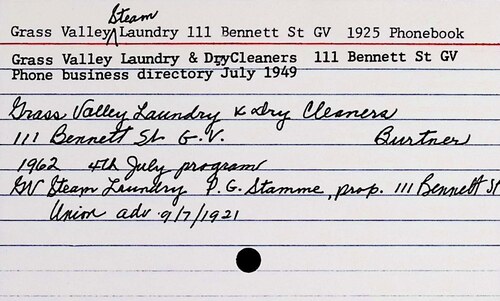 Grass Valley Steam Laundry 111 Bennett St GV 1925 Phonebook
Grass Valley Laundry & DryCleaners 111 Bennett St GV
Phone business directory July 1949
Grass Valley Laundry & Dry Cleaners
111 Bennett St. G.V. Burtner
1962 4th July program
GV Steam Laundry P.G. Stamme, prop. 111 Bennett St
Union adv. 9/7/1921